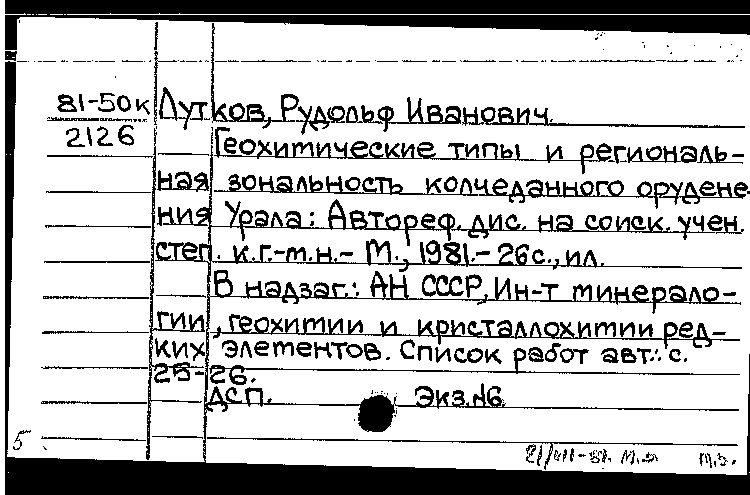 81-50к Лутков, Рудольф Иванович.
2126 Геохимические типы и региональ-
ная зональность колчеданного орудене
ния Урала: Автореф. дис. на соиск. учен.
степ. к.г.-м.н.- М., 1981.- 26с., ил.
В надзаг.: АН СССР, Ин-т минерало-
гии, геохимии и кристаллохимии ред-
ких элементов. Список работ авт.: с.
25-26.
ДСП. Экз.№6
5.